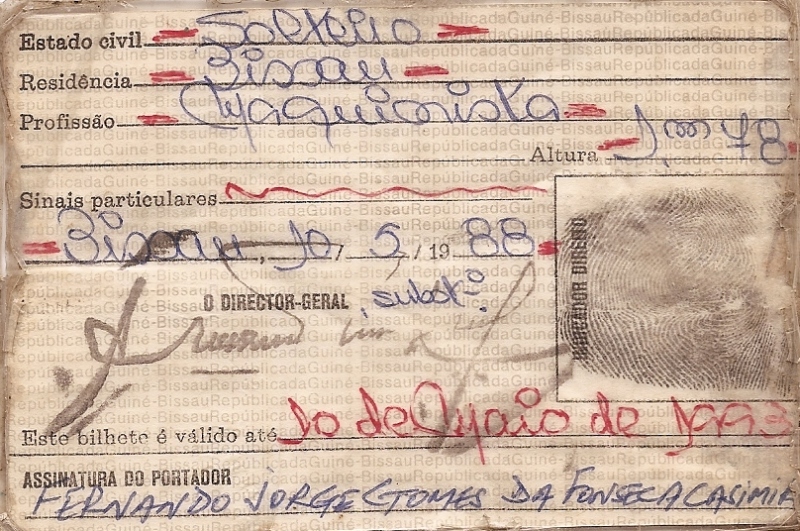 Estado civil Solteiro
Residência Bissau
Profissão Maquinista
Altura 1,m78
Sinais particulares
Bissau, 10/5/1988
O DIRECTOR-GERAL, substº
INDICADOR DIREITO
Este bilhete é válido até 10 de Maio de 1993
ASSINATURA DO PORTADOR
FERNANDO JORGE GOMES DA FONSECA CASIMIR